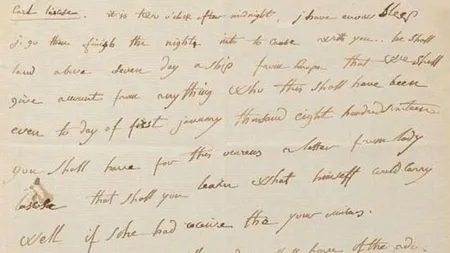 Count lascases. it is two o'clock after midnight, j have enow sleep
j go then finish the night into to cause with you... he shall
land above seven day a ship from Europe that we shall
give account from anything who this shall have been
even to day of first january thousand eight hundred sixteen
you shall have for this ocurens a letter from lady
lascases that shall you learn what himself could carry
well if she had conceive the your
shall have